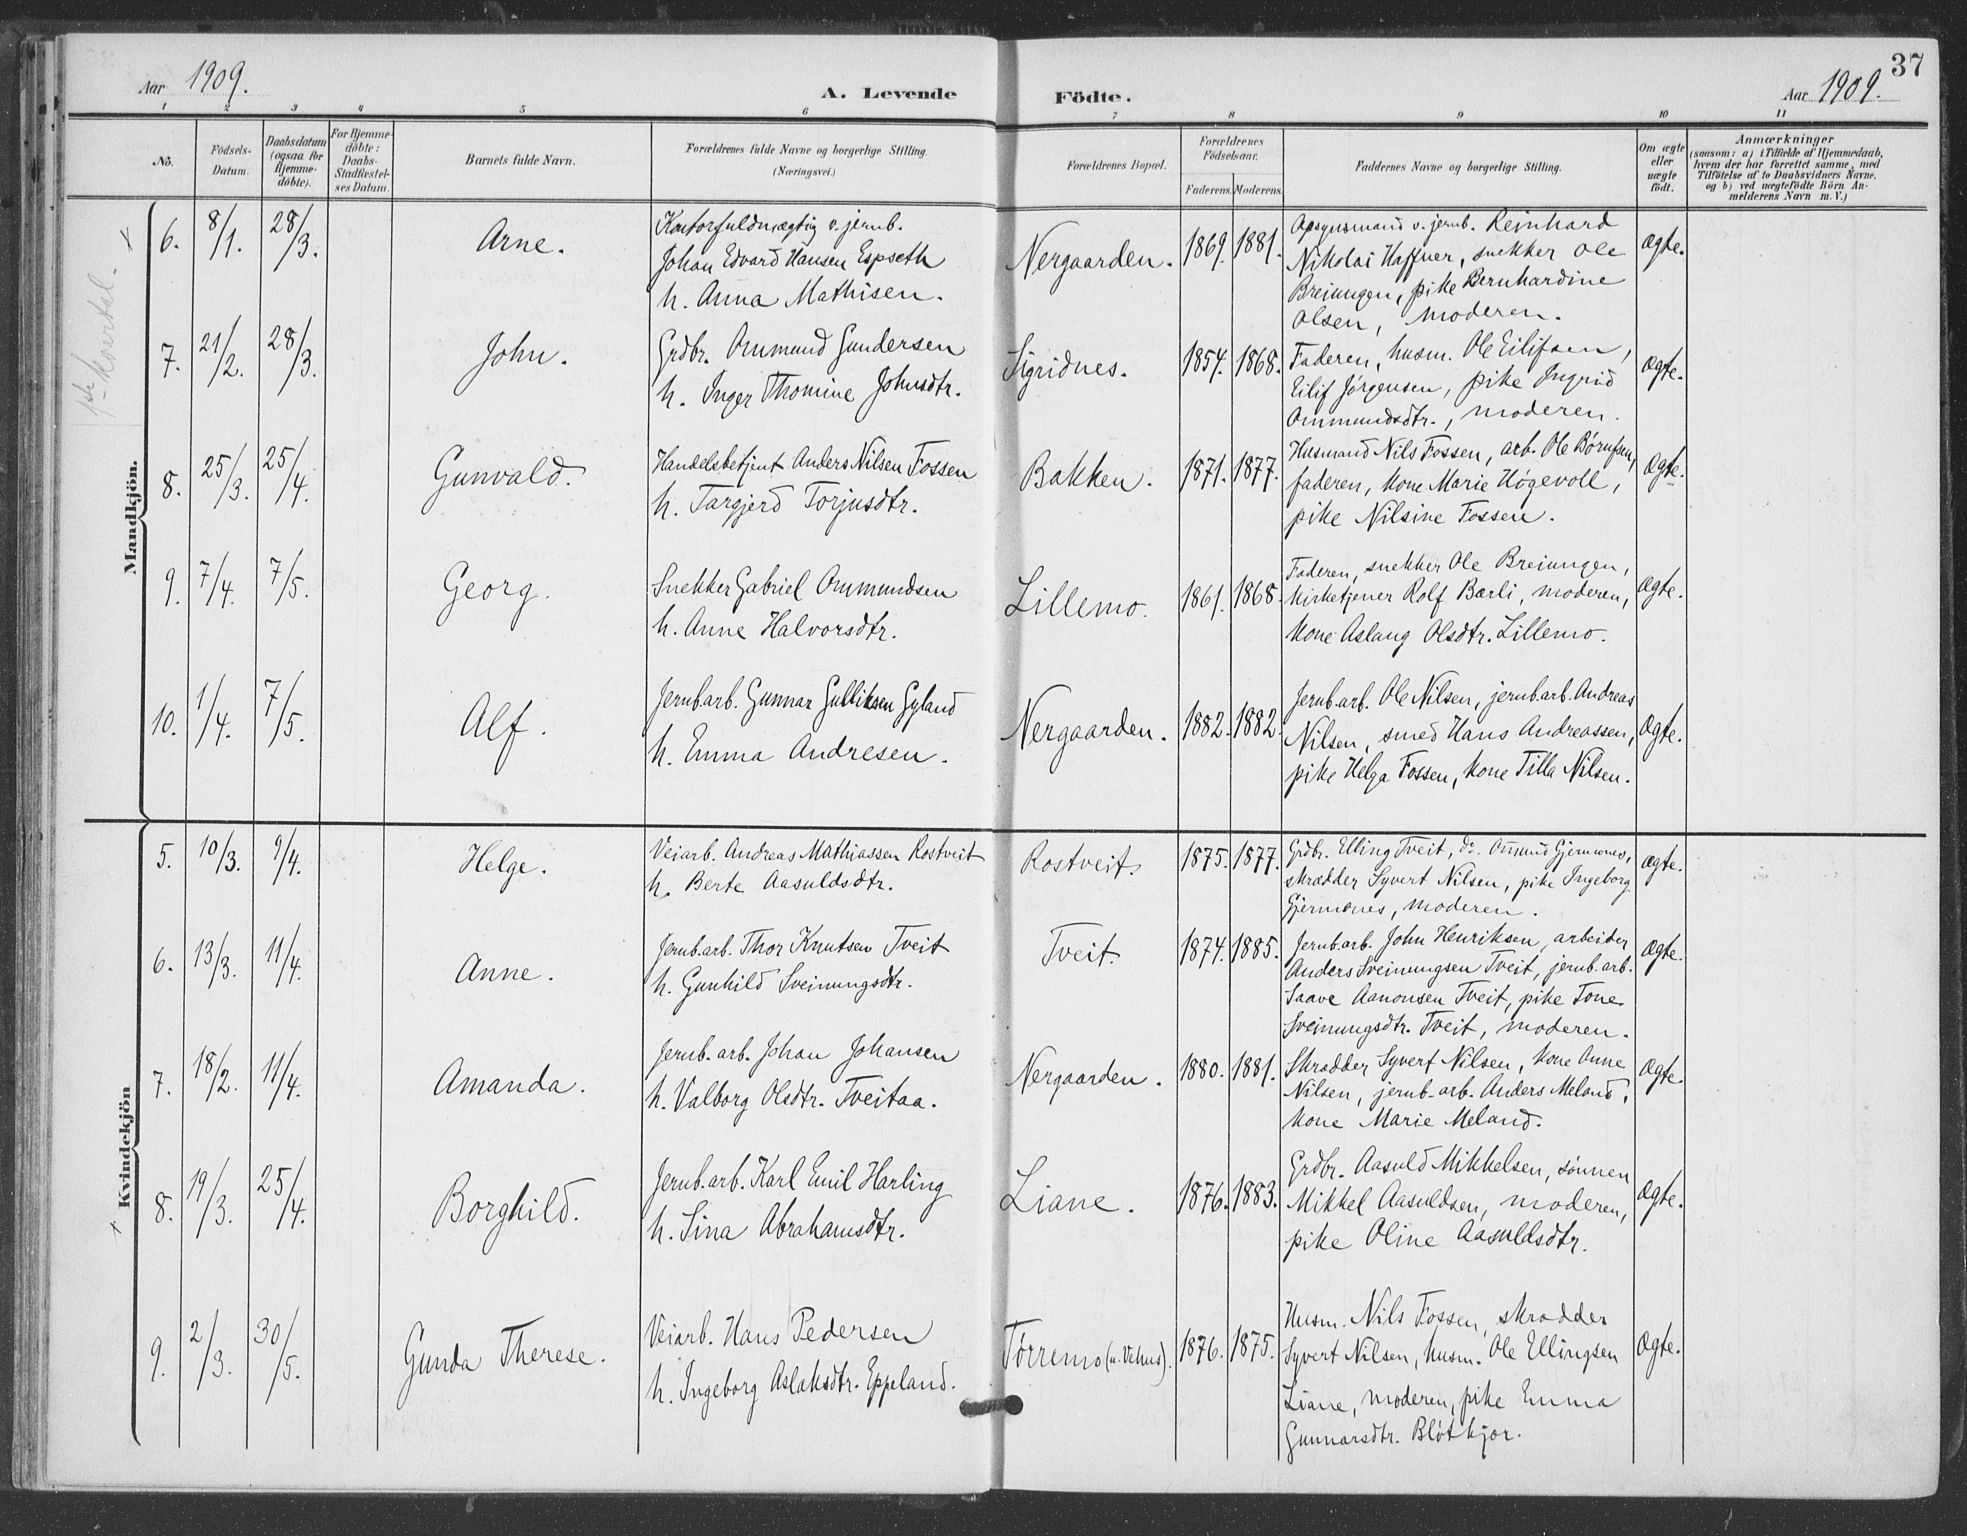 37
Aar 1909.
A. Levende Födte.
Aar 1909.
1 2 3 4 5 6 7 8 9 10 11
No.
Födsels-
Datum.
Daabsdatum
(ogsaa for
Hjemme-
döbte).
For Hjemme-
döbte:
Daabs-
Stadfæstel-
ses Datum.
Barnets fulde Navn.
Forældrenes fulde Navne og borgerlige Stilling.
(Næringsvei.)
Forældrenes Bopæl.
Forældrenes
Födselsaar.
Faderens. Moderens.
Faddernes Navne og borgerlige Stilling.
Om ægte
eller
uægte
födt.
Anmærkninger
(saasom: a) i Tilfælde af Hjemmedaab,
hvem der har forrettet samme, med
Tilföielse af to Daabsvidners Navne,
og b) ved uægtefödte Börn An-
melderens Navn m. V.)
Mandkjön.
6. 8/1. 28/3. Arne.
Kontorfuldmægtig v. jernb.
Johan Edvard Hansen Espseth
h. Anna Mathisen.
Nergaarden. 1869. 1881.
Opsynsmand v. jernb. Reinhard
Nikolai Haffner, snekker Ole
Breiungen, pike Bernhardine
Olsen, moderen.
ægte.
7. 21/2. 28/3. John.
Grdbr. Ommund Gundersen
h. Inger Thomine Johnsdtr.
Sigridnes. 1854. 1868.
Faderen, husm. Ole Eilifsen,
Eilif Jørgensen, pike Ingrid
Ommundsdtr., moderen.
ægte.
8. 25/3. 25/4. Gunvald.
Handelsbetjent Anders Nilsen Fossen
h. Targjerd Torjusdtr.
Bakken. 1871. 1877.
Husmand Nils Fossen, arb. Ole Børufsen,
faderen, kone Marie Høgevoll,
pike Nilsine Fossen.
ægte.
9. 7/4. 7/5. Georg.
Snekker Gabriel Ommundsen
h. Anne Halvorsdtr.
Lillemo. 1861. 1868.
Faderen, snekker Ole Breiungen,
kirketjener Rolf Bærli, moderen,
kone Aslaug Olsdtr. Lillemo.
ægte.
10. 1/4. 7/5. Alf.
Jernb.arb. Gunnar Gulliksen Gyland
h. Emma Andresen.
Nergaarden. 1882. 1882
Jernb.arb. Ole Nilsen, jernb.arb. Andreas
Nilsen, smed Hans Andreassen,
pike Helga Fossen, kone Tilla Nilsen.
ægte.
Kvindekjön
5. 10/3. 9/4. Helge.
Veiarb. Andreas Mathiassen Rostveit
h. Berte Aasuldsdtr.
Rostveit. 1875. 1877.
Grdbr. Elling Tveit, do. Omund Gjermenes,
skrædder Syvert Nilsen, pike Ingeborg
Gjermenes, moderen.
ægte.
6. 13/3. 11/4. Anne.
Jernb.arb. Thor Knutsen Tveit
h. Gunhild Sveinungsdtr.
Tveit. 1874. 1885.
Jernb.arb. John Henriksen, arbeider
Anders Sveinungsen Tveit, jernb.arb.
Saave Aanonsen Tveit, pike Tone
Sveinungsdtr. Tveit, moderen.
ægte.
7. 18/2. 11/4. Amanda.
Jernb.arb. Johan Johansen
h. Valborg Olsdtr. Tveitaa.
Nergaarden. 1880. 1881.
Skrædder Syvert Nilsen, kone Anne
Nilsen, jernb.arb. Anders Meland,
kone Marie Meland.
ægte.
8. 19/3. 25/4. Borghild.
Jernb.arb. Karl Emil Harling
h. Sina Abrahamsdtr.
Liane. 1876. 1883.
Grdbr. Aasuld Mikkelsen, sønnen
Mikkel Aasuldsen, moderen,
pike Oline Aasuldsdtr.
ægte.
9. 2/3. 30/5. Gunda Therese.
Veiarb. Hans Pedersen
h. Ingeborg Aslaksdtr. Eppeland.
Tørremo (u. Vehus). 1876. 1875.
Husm. Nils Fossen, skrædder
Syvert Nilsen, husm. Ole Ellingsen
Liane, moderen, pike Emma
Gunnarsdtr. Bløtkjær.
ægte.